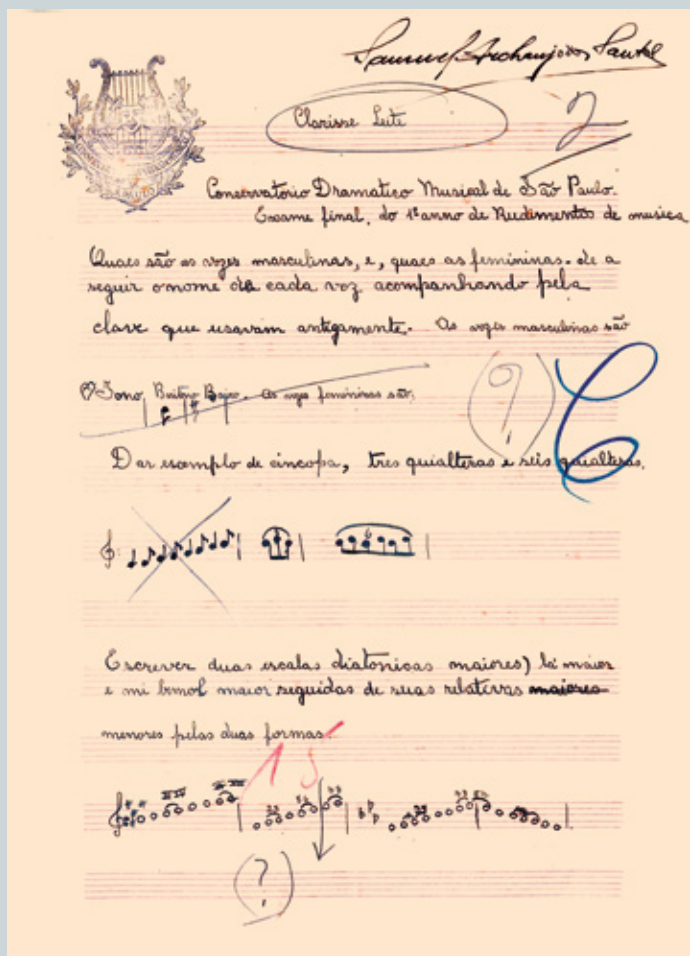 Samuel Archanjo dos Santos
Clarisse Leite
Conservatorio Dramatico Musical de São Paulo.
Exame final, do 1º anno de Rudimentos de musica
Quaes são as vozes masculinas, e, quaes as femininas. de a
seguir o nome de cada voz acompanhando pela
clave que usavam antigamente. As vozes masculinas são
Tono, Baritno Baixo. As vozes femininas são:
(?)
Dar exemplo de cincopa, tres quialteras e seis quialteras.
Escrever duas escalas diatonicas maiores) lá maior
e mi bemol maior seguidas de suas relativas maiores
menores pelas duas formas.
(?)